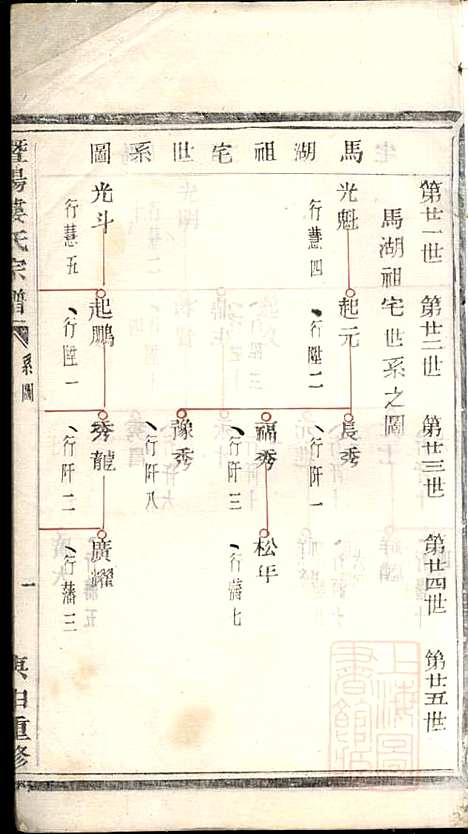 馬湖祖宅世系圖
第廿一世
第廿二世
第廿三世
第廿四世
第廿五世
馬湖祖宅世系之圖
光魁
行慧四
起元
行陞二
長秀
行阡一
福秀
行阡三
松年
行藩七
豫秀
行阡八
光斗
行慧五
起鵬
行陞一
秀龍
行阡二
廣耀
行藩三
暨陽婁氏宗譜
系圖
一
庚申重修
上海圖書館